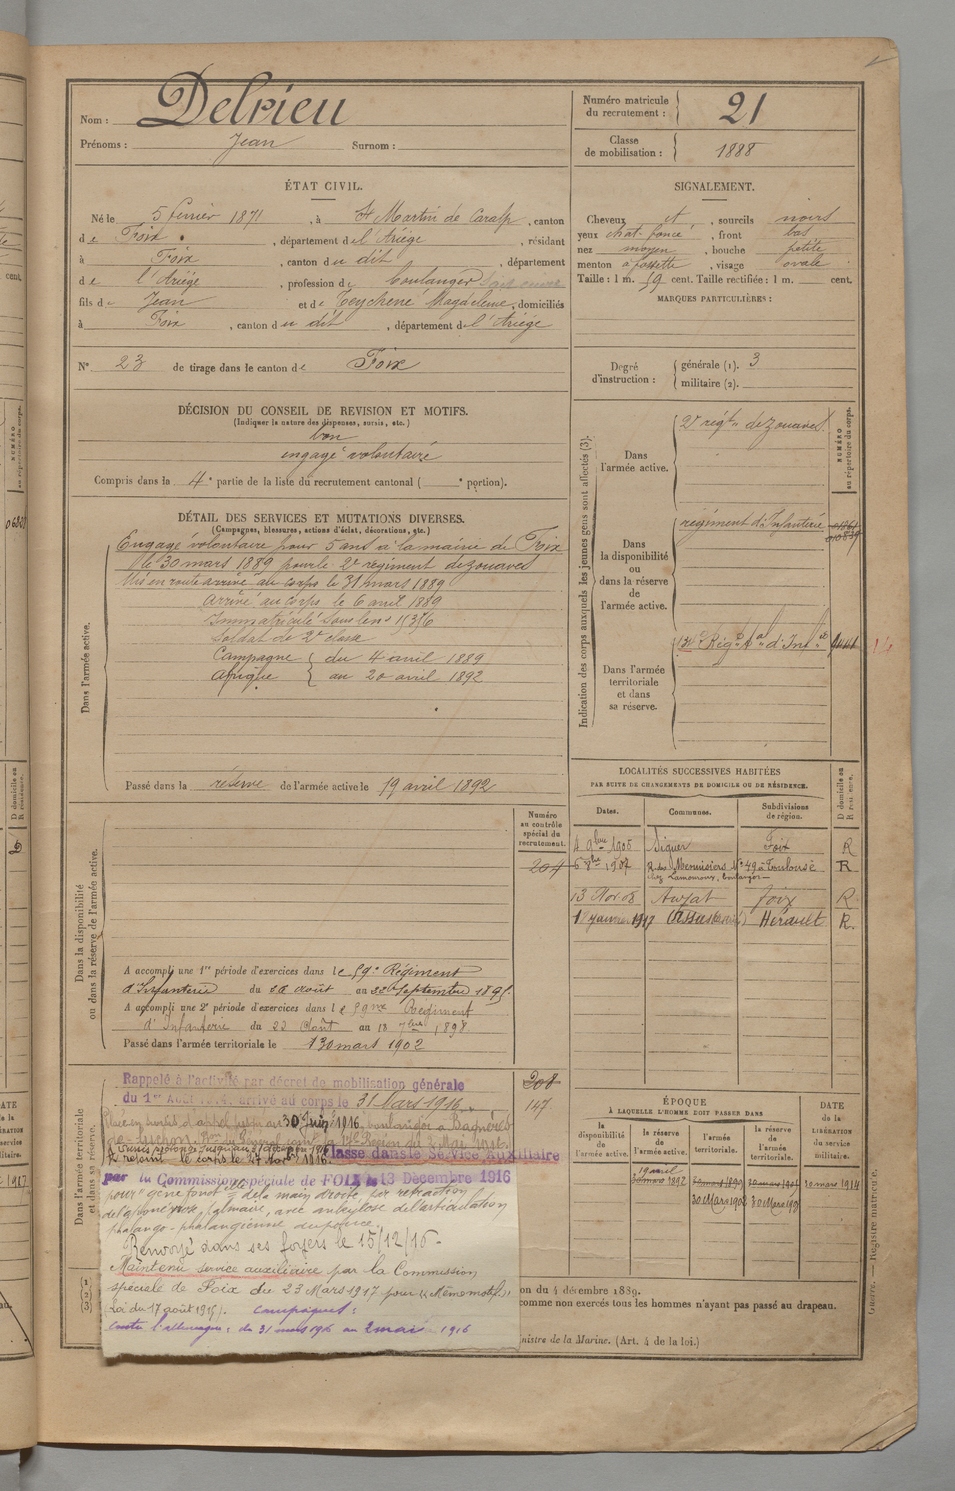 Nom : Delrieu
Prénoms : Jean Surnom :
Numéro matricule
du recrutement : 21
Classe
de mobilisation : 1888
ÉTAT CIVIL.
Né le 5 février 1871, à St Martin de Caralp, canton
de Foix, département de l'Ariège, résidant
à Foix, canton du dit, département
de l'Ariège, profession de boulanger
fils de Jean et de Teychene Magdeleine, domiciliés
à Foix, canton du dit, département de l'Ariège
N° 23 de tirage dans le canton de Foix
SIGNALEMENT.
Cheveux et, sourcils noirs
yeux chat. foncé, front bas
nez moyen, bouche petite
menton à fossette, visage ovale
Taille : 1 m. 59 cent. Taille rectifiée : 1 m. cent.
MARQUES PARTICULIÈRES :
Degré
d'instruction :
générale (1). 3
militaire (2).
DÉCISION DU CONSEIL DE REVISION ET MOTIFS.
(Indiquer la nature des dispenses, sursis, etc.)
bon
engagé volontaire
Compris dans la 4e partie de la liste du recrutement cantonal ( e portion).
DÉTAIL DES SERVICES ET MUTATIONS DIVERSES.
(Campagnes, blessures, actions d'éclat, décorations, etc.)
Dans l'armée active.
Engagé volontaire pour 5 ans à la mairie de Foix
le 30 mars 1889 pour le 2e régiment de zouaves
Mis en route arrivé au corps le 31 mars 1889
Arrivé au corps le 6 avril 1889
Immatriculé sous le n°
Soldat de 2e classe
Campagne { du 4 avril 1889
Afrique { au 20 avril 1892
Passé dans la réserve de l'armée active le 19 avril 1892
Indication des corps auxquels les jeunes gens sont affectés (3).
NUMÉRO
au répertoire du corps.
Dans
l'armée active.
2e régt de zouaves
Dans
la disponibilité
ou
dans la réserve
de
l'armée active.
régiment d'Infanterie
Dans l'armée
territoriale
et dans
sa réserve.
134e Régt tal d'Infie
LOCALITÉS SUCCESSIVES HABITÉES
PAR SUITE DE CHANGEMENTS DE DOMICILE OU DE RÉSIDENCE.
D domicile ou
R résidence.
Dates. Communes. Subdivisions
de région.
4 9bre 1905 Siguer Foix R
6 8bre 1907 R. des Menuisiers N° 49 à Toulouse R
chez Lamouroux, boulanger
13 Nov. 08 Auzat Foix R
Janvier 1913 Hérault R.
Numéro
au contrôle
spécial du
recrutement.
204
Dans la disponibilité
ou dans la réserve de l'armée active.
A accompli une 1re période d'exercices dans le 59e Régiment
d'Infanterie du 26 août au 22 septembre 1895.
A accompli une 2e période d'exercices dans le 59me Régiment
d'Infanterie du 22 Août au 18 7bre 1898
Passé dans l'armée territoriale le 30 mars 1902
Dans l'armée territoriale
et dans sa réserve.
208
147
Rappelé à l'activité par décret de mobilisation générale
du 1er Août 1914. arrivé au corps le 31 Mars 1916
Placé en sursis d'appel jusqu'au 30 Juin 1916 boulanger à Bagnères
de Luchon.
Classé dans le Service Auxiliaire
par la Commission spéciale de FOIX le 13 Décembre 1916
pour gêne fonctelle de la main droite par rétraction
de l'aponévrose palmaire, avec ankylose de l'articulation
phalango-phalangienne du pouce.
Renvoyé dans ses foyers le 15/12/16
Maintenu service auxiliaire par la Commission
spéciale de Foix du 23 Mars 1917 pour "Même motif"
Loi du 17 août 1915. Campagnes :
contre l'Allemagne : du 31 mars 1916 au 2 mai 1916
ÉPOQUE
À LAQUELLE L'HOMME DOIT PASSER DANS
la
disponibilité
de
l'armée active.
la réserve
de
l'armée active.
l'armée
territoriale.
la réserve
de
l'armée
territoriale.
DATE
de la
LIBÉRATION
du service
militaire.
19 avril
30 mars 1892
30 Mars 1902
30 mars 1914
on du 4 décembre 1889.
comme non exercés tous les hommes n'ayant pas passé au drapeau.
nistre de la Marine. (Art. 4 de la loi.)
Guerre. — Registre matricule.